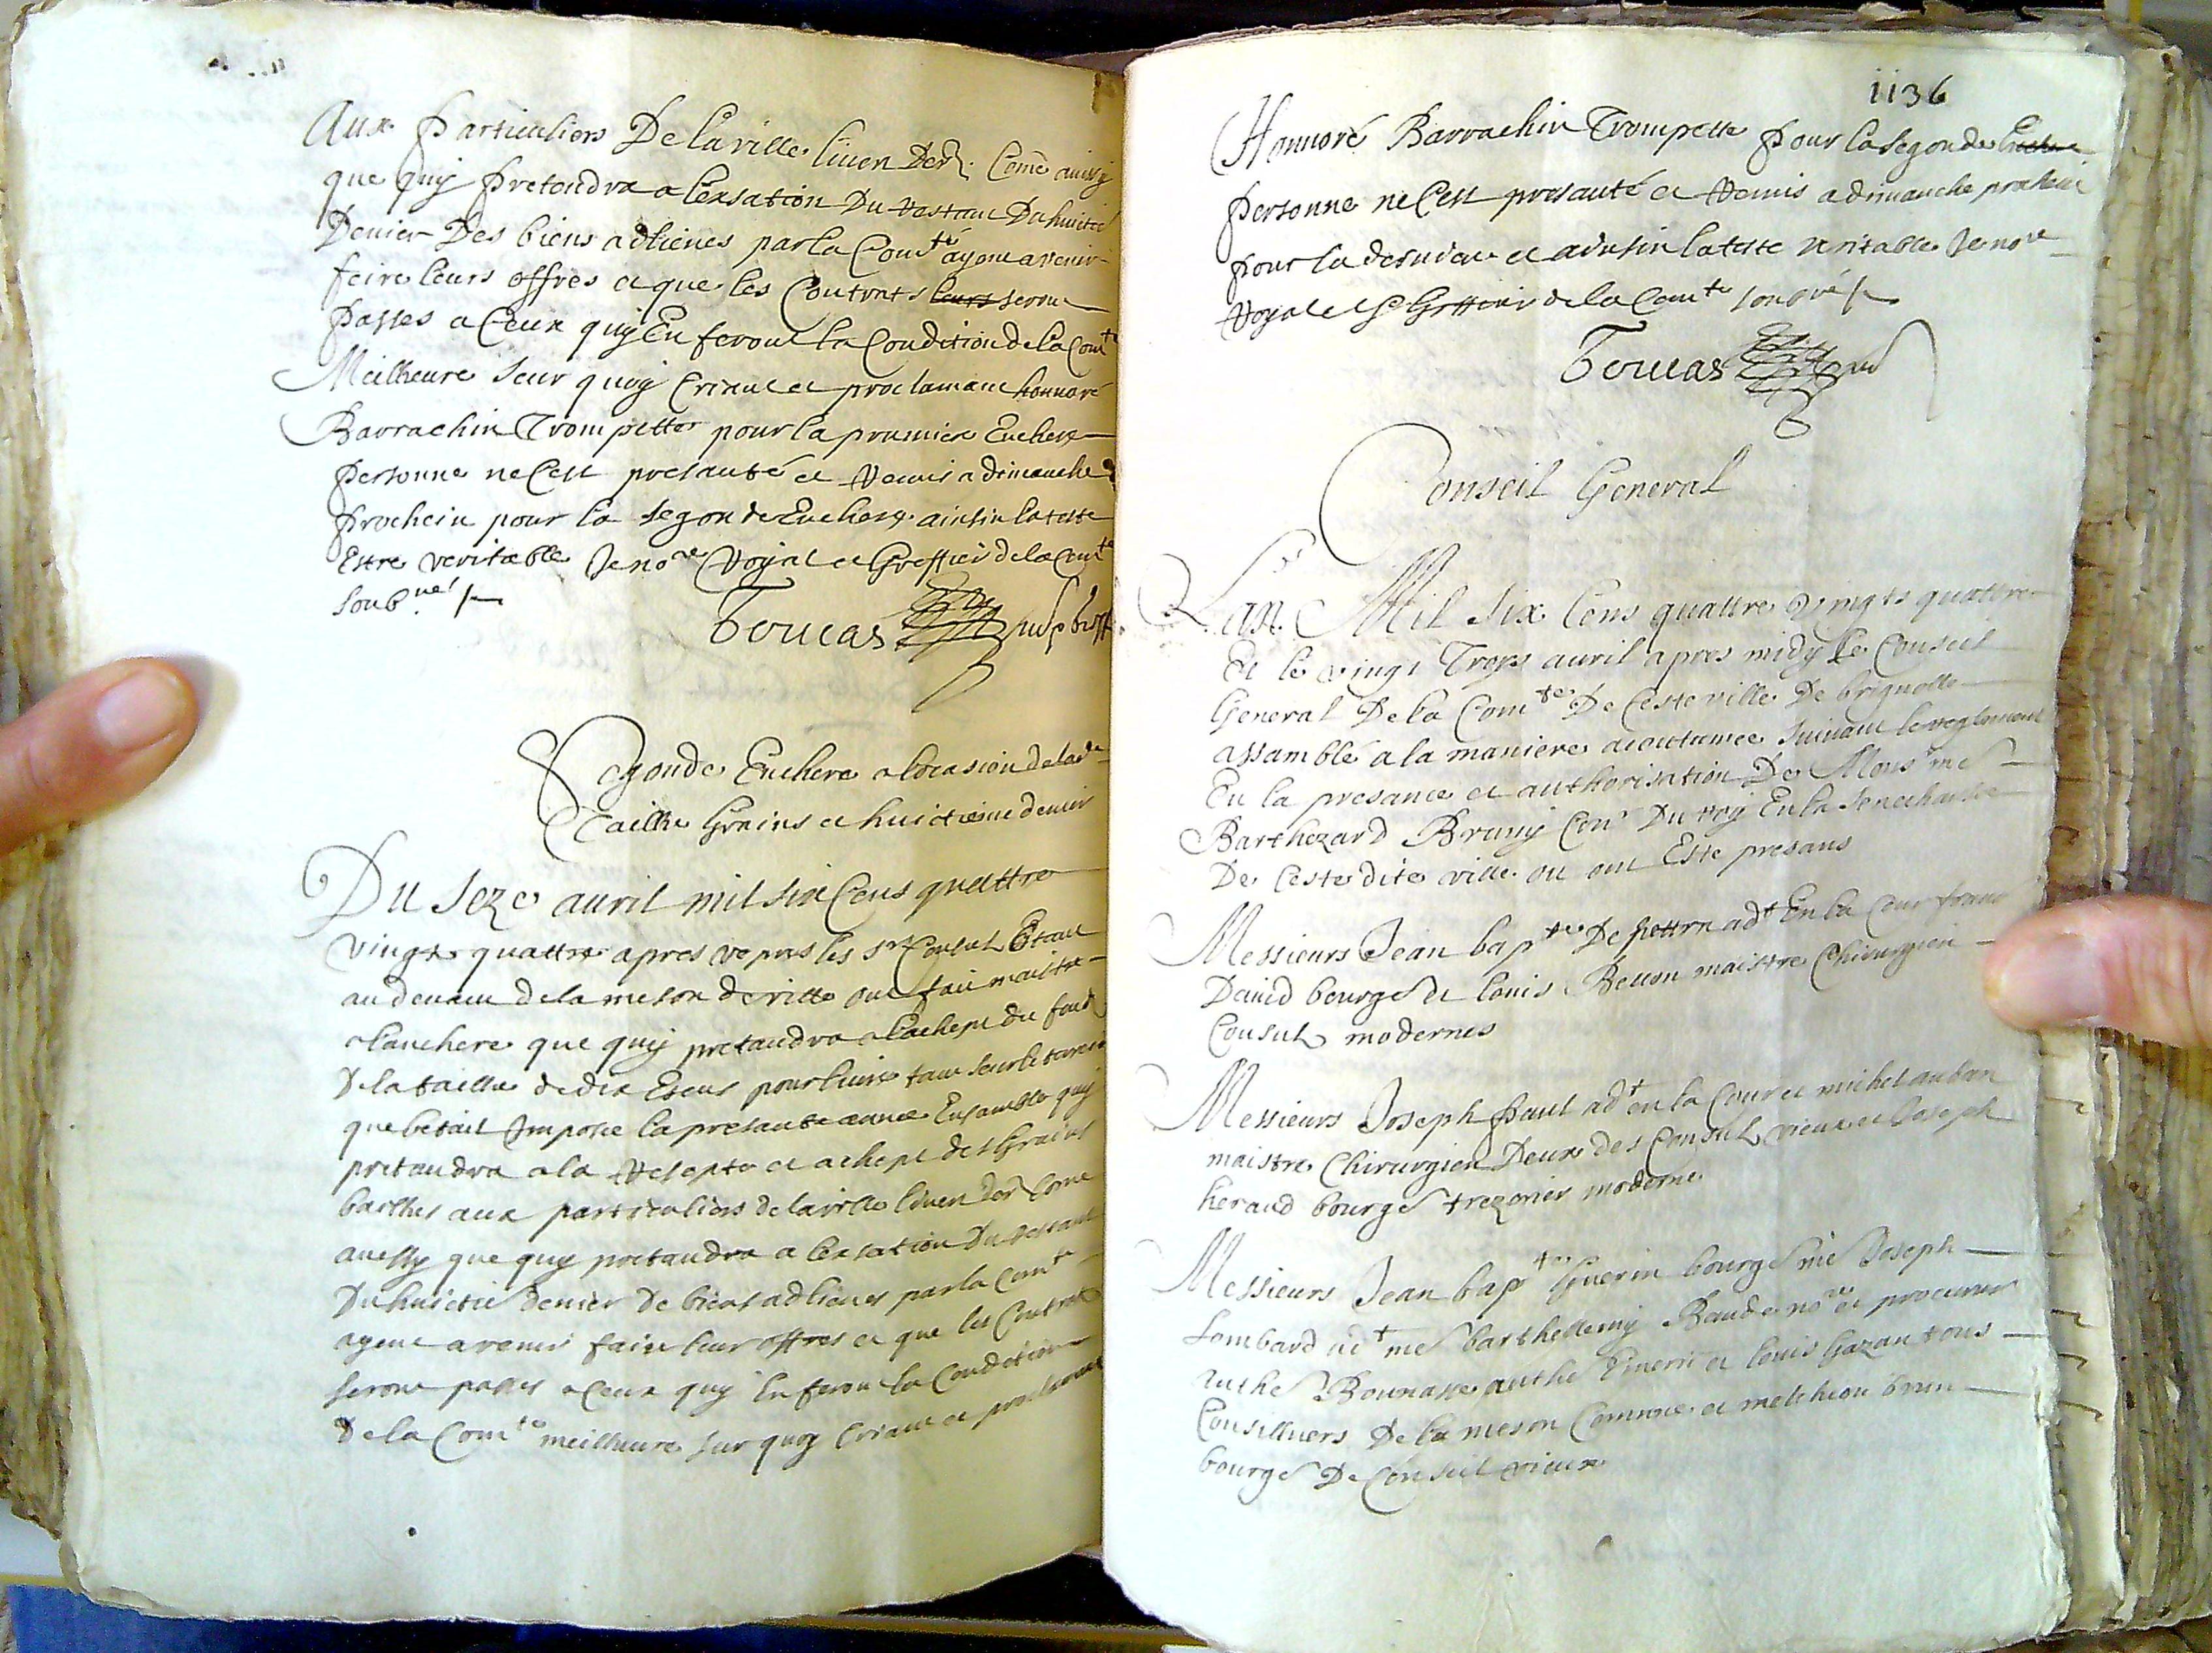 Aux Particuliers De la ville liuer Der. Come aussy
que quy Pretendra a lexsation Du restant Du huitie
Denier Des biens adlienes par la Com.te ayent a venir
feire leurs offres et que les Contrats leurs seront
Passes a Ceux quy En feront la Condition de la Com.te
Meilheure Seur quoy Criant et proclamant honnoré
Barrachin Trompette pour la premiere Enchere
Personne ne Cest presanté et Remis a dimanche
Prochein pour la Segonde Enchere ainsin lateste
Estre veritable Je no.re Royal et Greffier de la Com.te
Soub.né
Toucas
Segonde Enchere a locasion de lad.
Taille Grains et huictieme denier
Du Seze auril mil six Cens quattre
vingts quattre apres vepres les Srs Consuls Estant
au deuant de la meson de ville ont fait maitre
a lanchere que quy pretandra a lachept du fond
De la taille de dix Escus pour liure tant seur le
que betail Impose la presante annee Ensamble quy
pretandra a la Recepte et achept des Grains
bailhes aux particuliers de la ville liuer der Come
aussy que quy pretandra a lexsation Du restant
Du huictie denier De biens adlienes par la Com.te
ayent a venir faire leur offres et que les Contrats
seront passes a Ceux quy En feront la Condition
De la Com.te meilheure sur quoy Criant et proclamant
1136
Honnoré Barrachin Trompette Pour la Segonde Enchere
Personne ne Cest presanté et Remis a dimanche prochein
Pour la derniere et ainsin lateste veritable Je no.re
Royal et Greffier de la Com.te soub.né
Toucas
Conseil General
Lan Mil Six Cens quattre Vingts quattre
Et le vingt Troys auril apres midy le Conseil
General De la Com.te De Ceste ville De brignolle
assamblé a la maniere acoutumee Suiuant le reglement
En la presance et authorisation De Monsr me
Barthezard Bruny Con.r Du roy En la Senechaussee
De Ceste dite ville ou ont Este presans
Messieurs Jean bap.te De pettra ad.t En la Cour
Dauid bourge et louis Bellon maistre Chirurgien
Consuls modernes
Messieurs Joseph Paul ad.t en la Cour et michel auban
maistre Chirurgien Deux des Consuls vieux et Joseph
heraud bourge trezorier moderne
Messieurs Jean bap.te Guerin bourge me Joseph
Lombard ad.t me barthellemy Baude no.re et procureur
Anthe Bounasse anthe Emeric et louis Gazan tous
Consilliers De la meson Comune et melchion brun
bourge De Conseil vieux